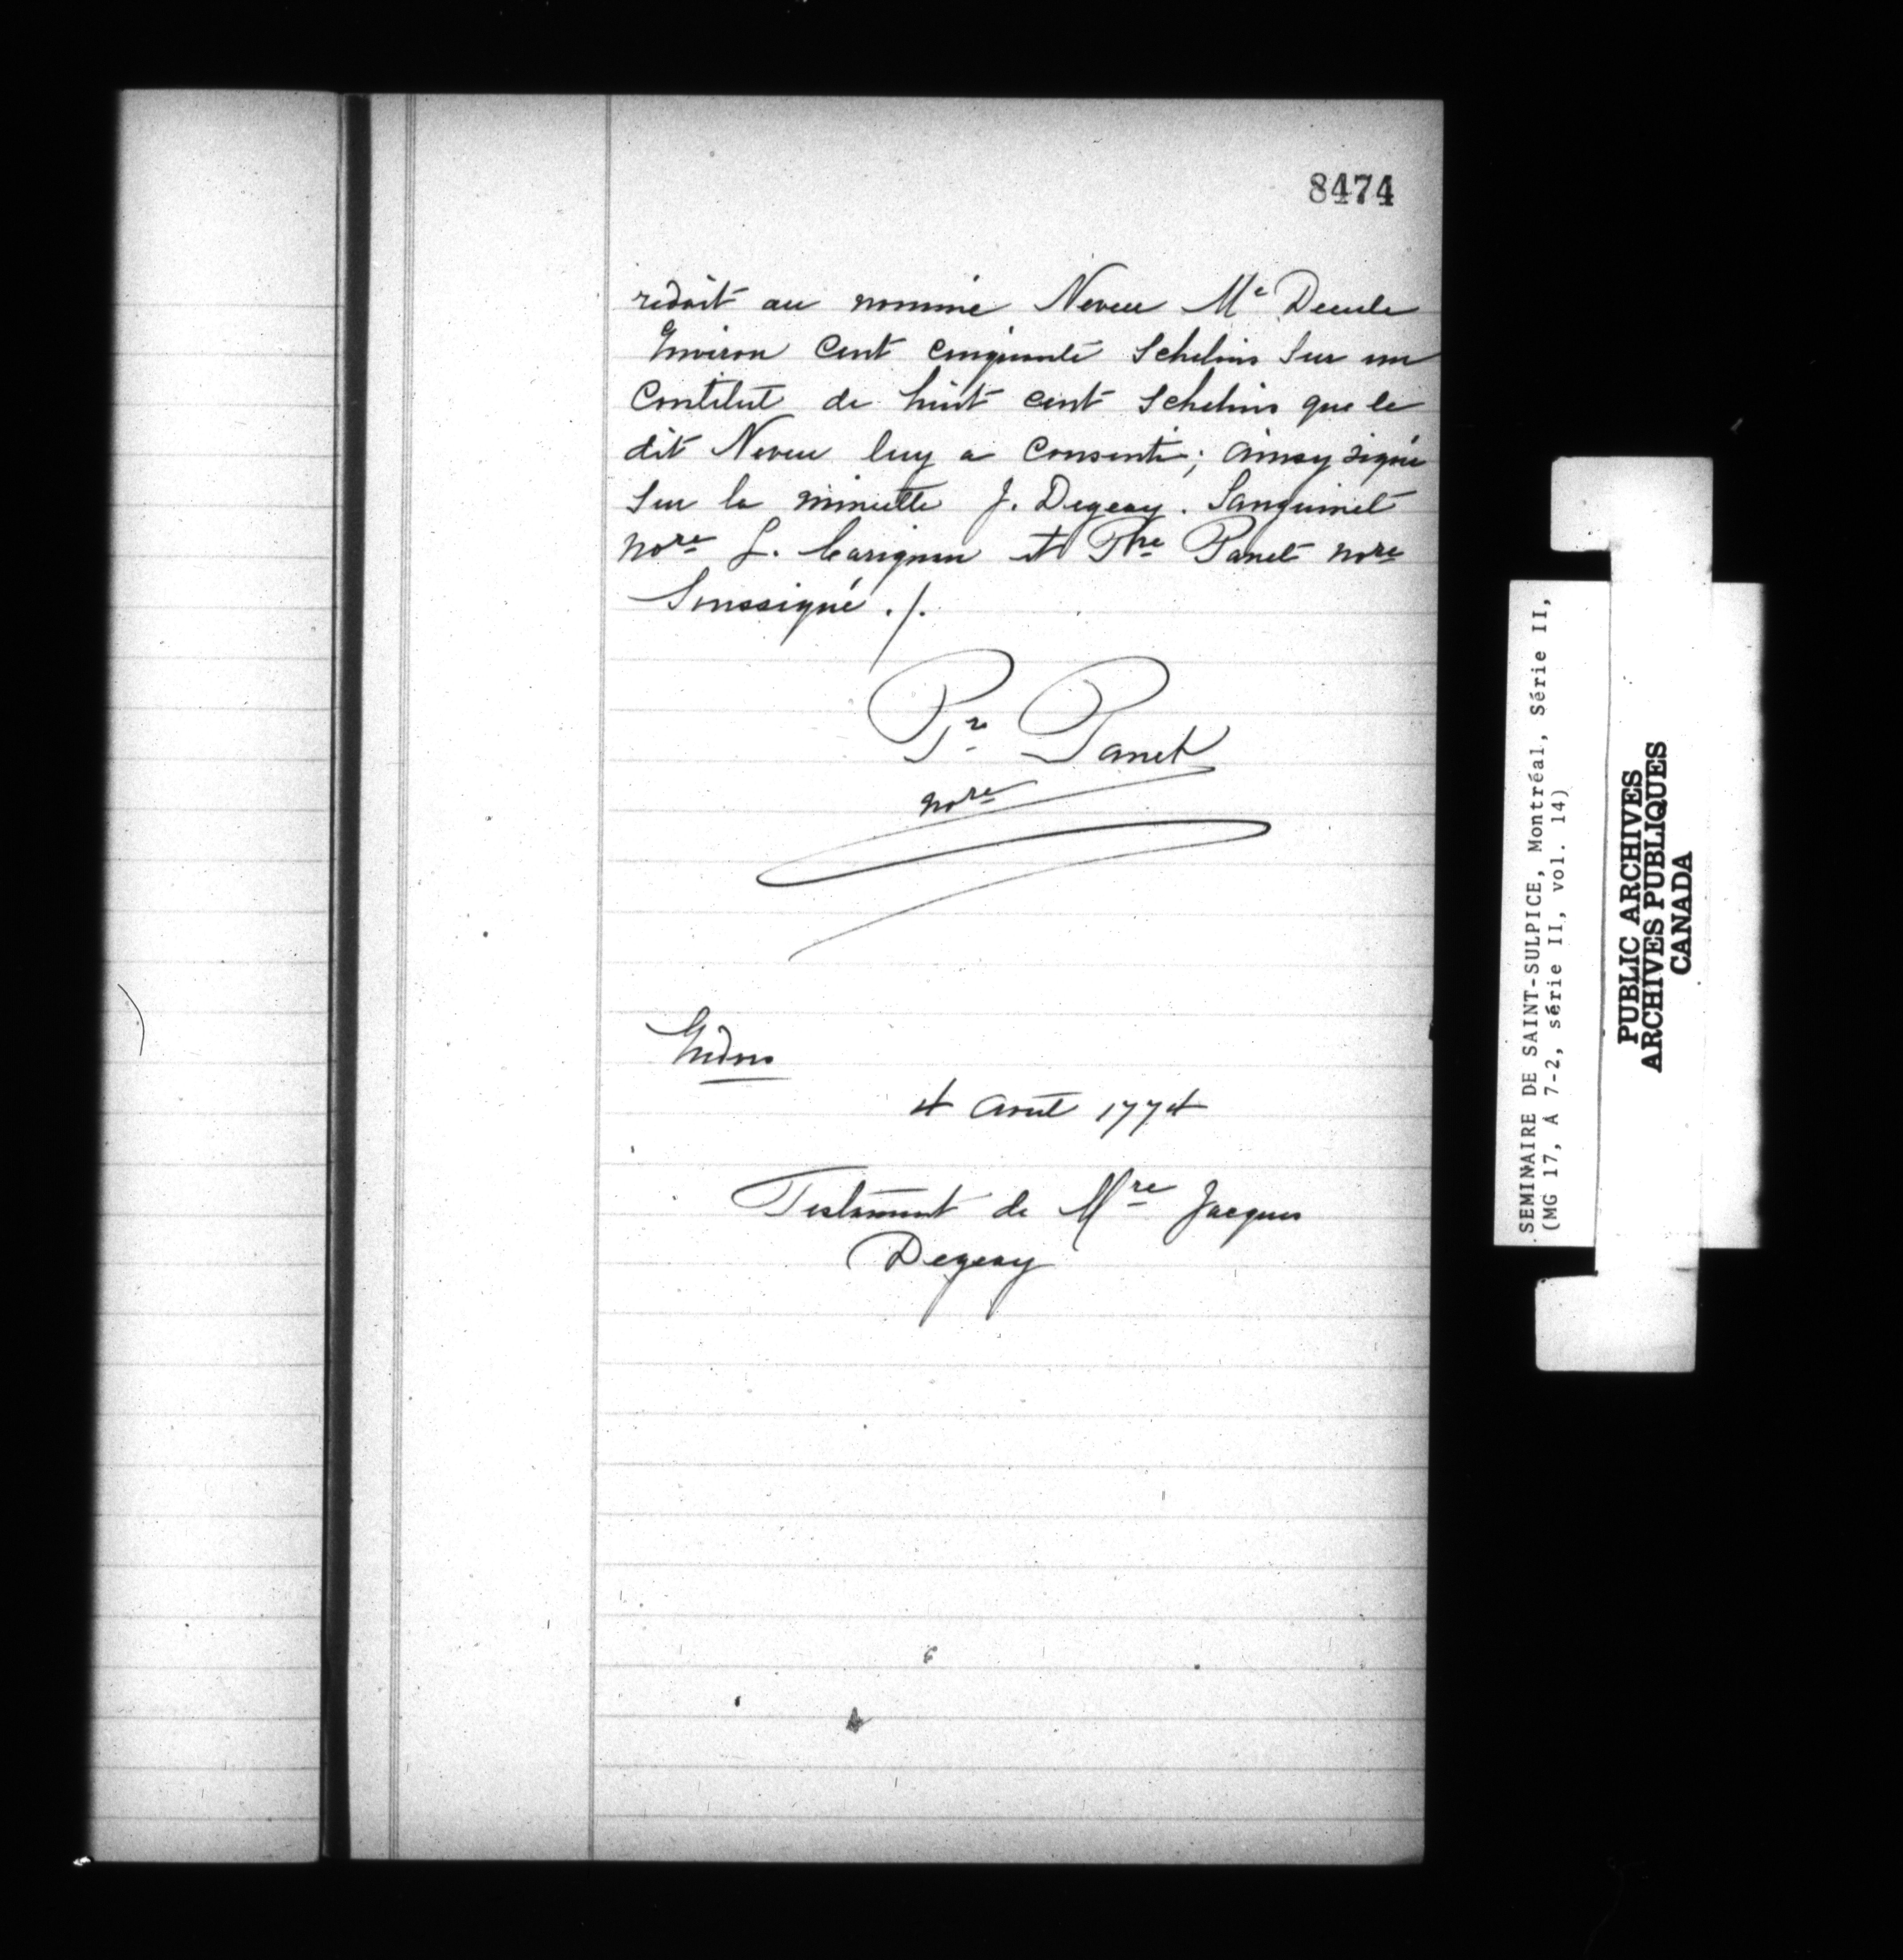 8474
redoit au nommé Neveu Me Deculs
Environ Cent cinquante Schelins Sur un
Contitut de huit cent Schelins que le
dit Neveu luy a Consenti; ainsy signé
Sur la minutte J. Degeay. Sanguinet
nore L. Carignan et Pre Panet nore
Soussigné ./.
Pre Panet
nore
Endos
4 Aout 1774
Testament de Mre Jacques
Degeay
SEMINAIRE DE SAINT-SULPICE, Montréal, Série II,
(MG 17, A 7-2, série II, vol. 14)
PUBLIC ARCHIVES
ARCHIVES PUBLIQUES
CANADA